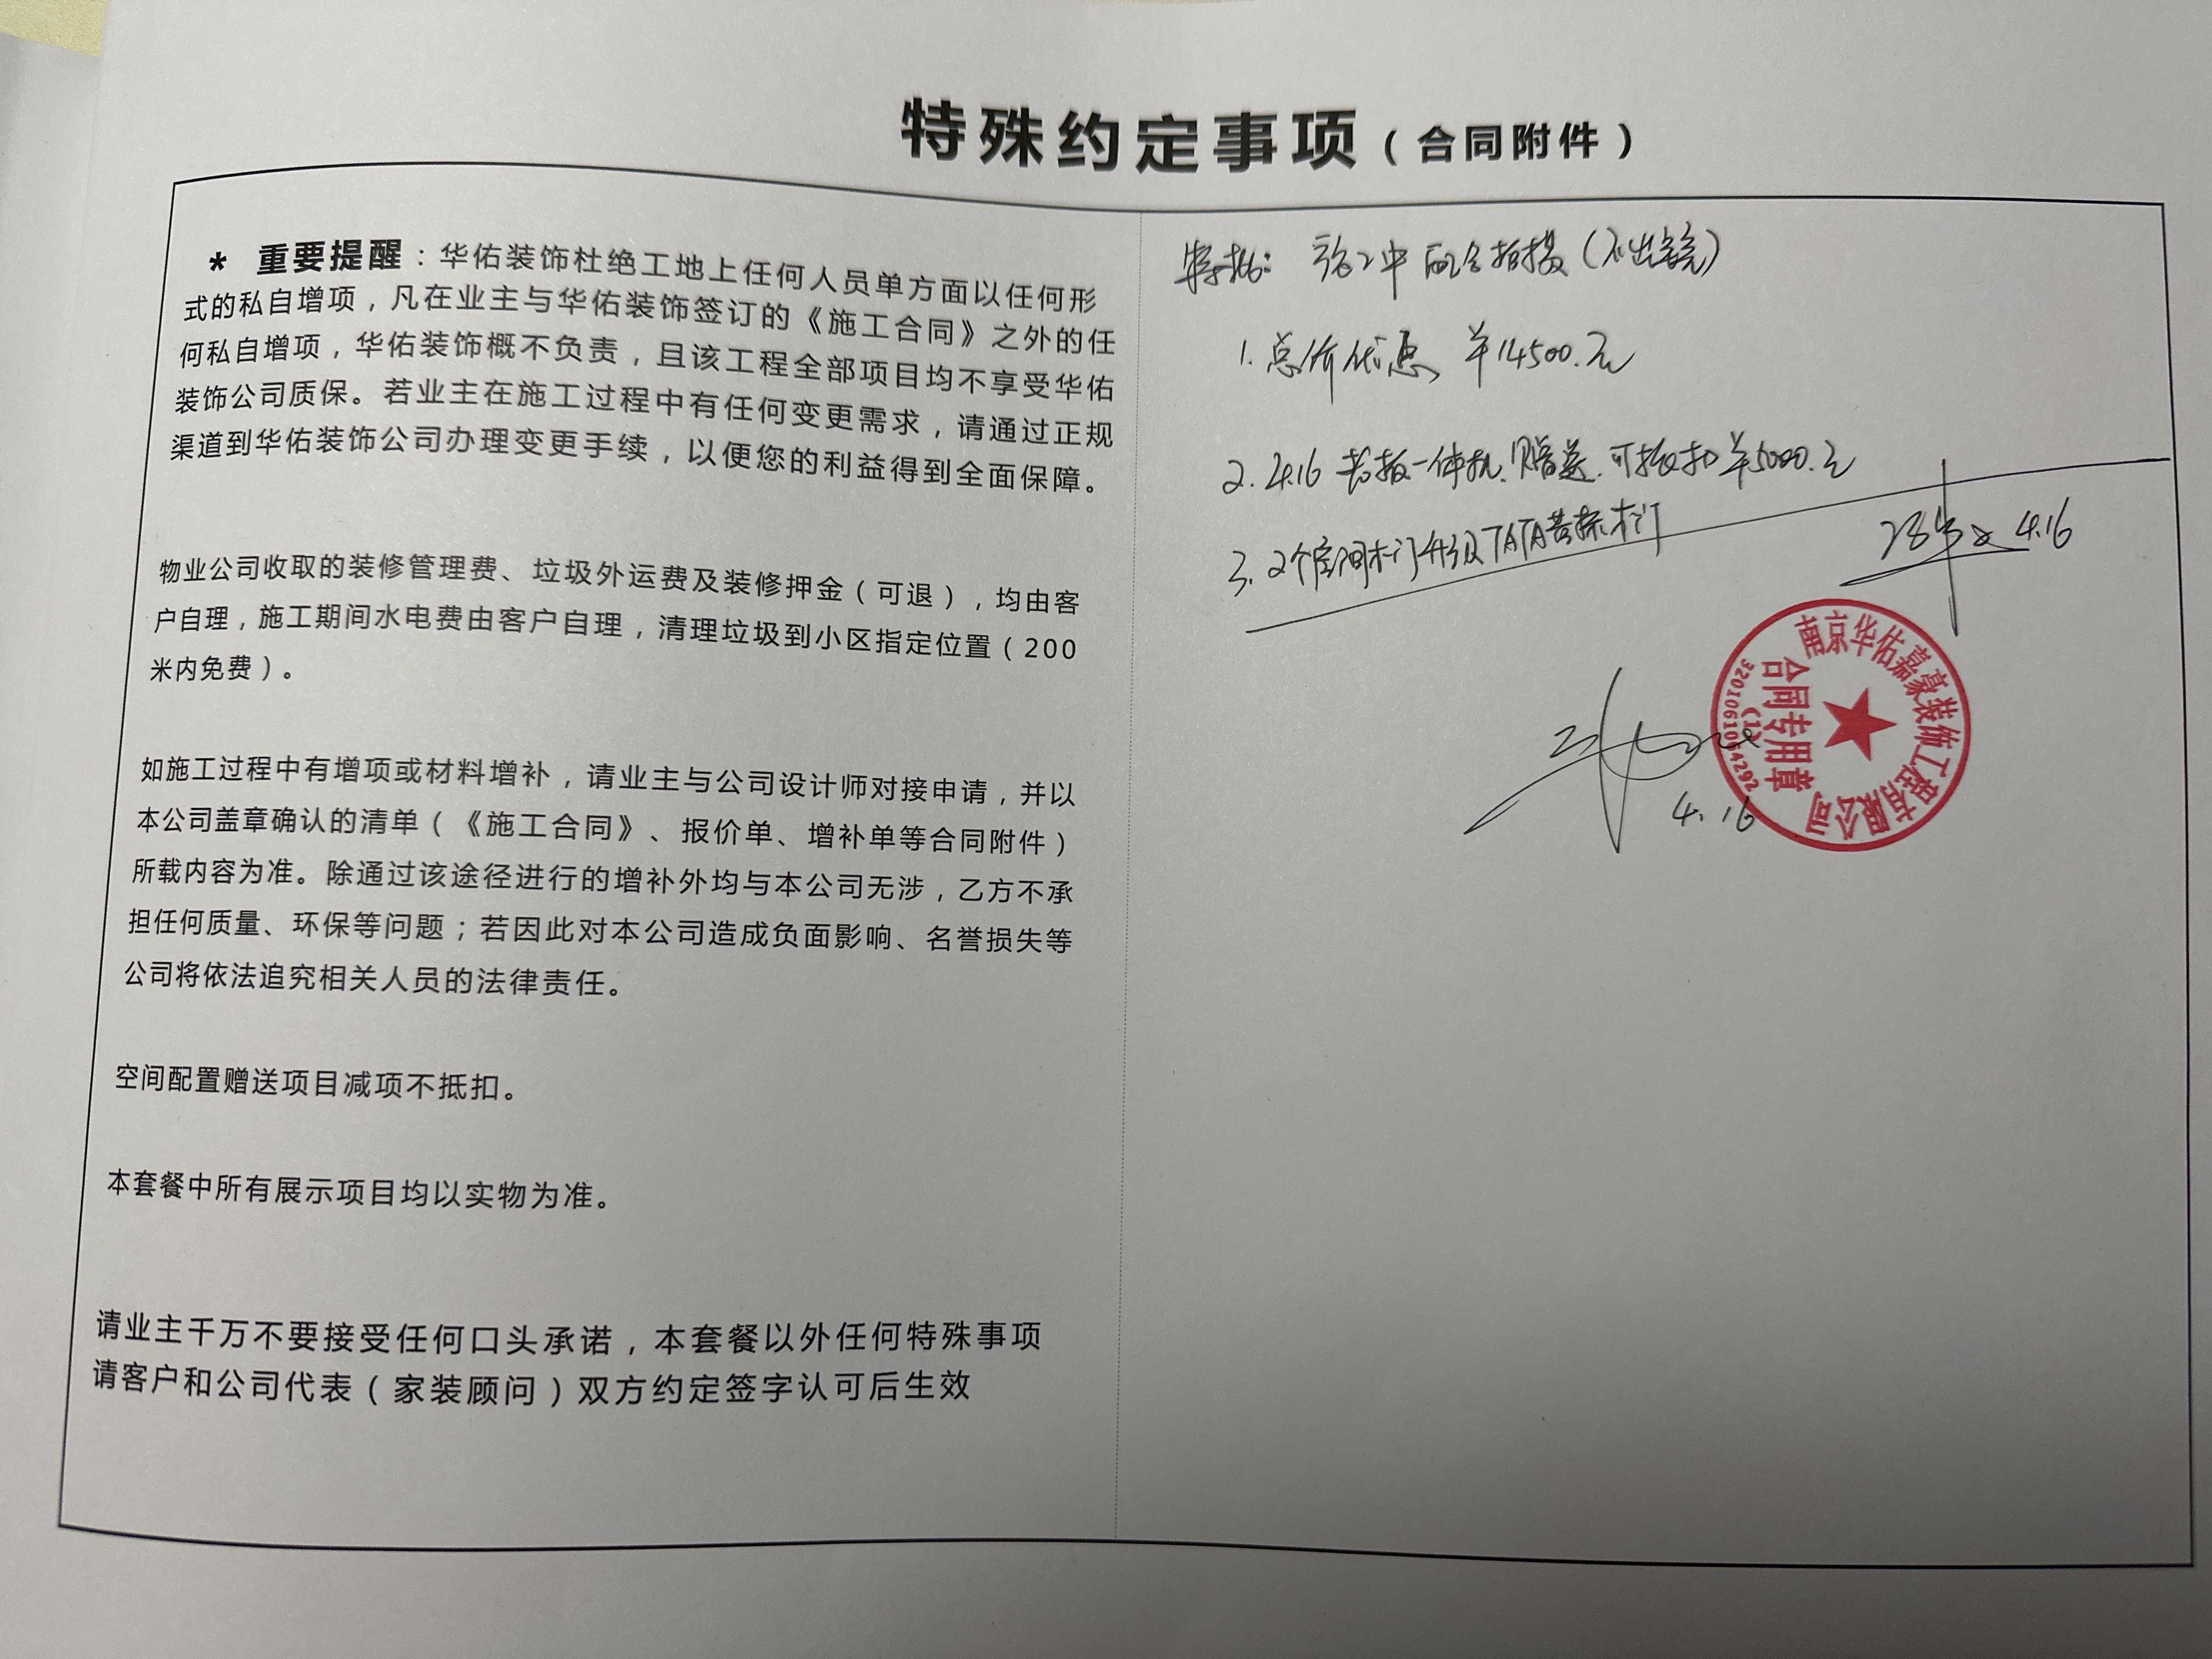 特殊约定事项（合同附件）
* 重要提醒：华佑装饰杜绝工地上任何人员单方面以任何形
式的私自增项，凡在业主与华佑装饰签订的《施工合同》之外的任
何私自增项，华佑装饰概不负责，且该工程全部项目均不享受华佑
装饰公司质保。若业主在施工过程中有任何变更需求，请通过正规
渠道到华佑装饰公司办理变更手续，以便您的利益得到全面保障。
物业公司收取的装修管理费、垃圾外运费及装修押金（可退），均由客
户自理，施工期间水电费由客户自理，清理垃圾到小区指定位置（200
米内免费）。
如施工过程中有增项或材料增补，请业主与公司设计师对接申请，并以
本公司盖章确认的清单（《施工合同》、报价单、增补单等合同附件）
所载内容为准。除通过该途径进行的增补外均与本公司无涉，乙方不承
担任何质量、环保等问题；若因此对本公司造成负面影响、名誉损失等
公司将依法追究相关人员的法律责任。
空间配置赠送项目减项不抵扣。
本套餐中所有展示项目均以实物为准。
请业主千万不要接受任何口头承诺，本套餐以外任何特殊事项
请客户和公司代表（家装顾问）双方约定签字认可后生效
特批：施工中配合拍摄（不出镜）
1. 总价优惠 ¥14500.元
2. 4.16 老板一体机.赠送.可抵扣¥5000.元
3. 2个房间木门升级TATA普标木门
4.16
4.16
南京华佑嘉豪装饰工程有限公司
合同专用章
(1)
3201061054292